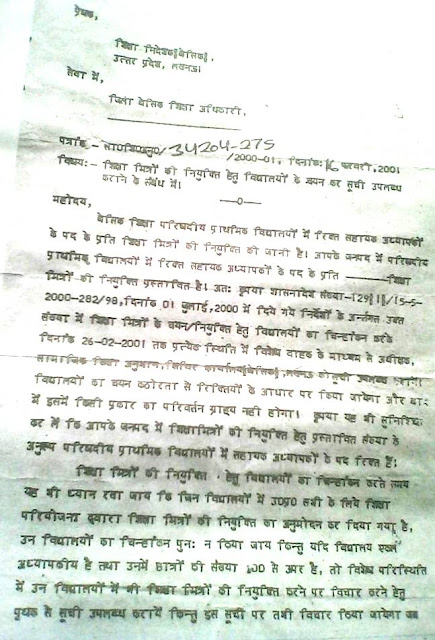 प्रेषक,
शिक्षा निदेशक॑बेसिक॑,
उत्तर प्रदेश, लखनऊ।
सेवा में,
जिला बेसिक शिक्षा अधिकारी,
पत्रांक - 34204-275 /2000-01, दिनांक: 16 फरवरी, 2001
विषय:- शिक्षा मित्रों की नियुक्ति हेतु विद्यालयों के चयन कर सूची उपलब्ध
कराने के संबंध में।
महोदय,
बेसिक शिक्षा परिषदीय प्राथमिक विद्यालयों में रिक्त सहायक अध्यापकों
के पद के प्रति शिक्षा मित्रों की नियुक्ति की जानी है। आपके जनपद में परिषदीय
प्राथमिक विद्यालयों में रिक्त सहायक अध्यापकों के पद के प्रति ———— शिक्षा
मित्रों की नियुक्ति प्रस्तावित है। अतः कृपया शासनादेश संख्या-129॑1॑/15-5-
2000-282/98,दिनांक 01 जुलाई,2000 में दिये गये निर्देशों के अन्तर्गत उक्त
संख्या में शिक्षा मित्रों के चयन/नियुक्ति हेतु विद्यालयों का चिन्हांकन करके
दिनांक 26-02-2001 तक प्रत्येक स्थिति में विशेष वाहक के माध्यम से अधीक्षक,
सामाजिक शिक्षा अनुभाग, शिविर कार्यालय॑बेसिक॑,लखनऊ को सूची उपलब्ध
विद्यालयों का चयन कठोरता से रिक्तियों के आधार पर किया जायेगा और बाद
में इसमें किसी प्रकार का परिवर्तन ग्राह्य नहीं होगा। कृपया यह भी सुनिश्चित
कर लें कि आपके जनपद में शिक्षामित्रों की नियुक्ति हेतु प्रस्तावित संख्या के
अनुरूप परिषदीय प्राथमिक विद्यालयों में सहायक अध्यापकों के पद रिक्त हैं।
शिक्षा मित्रों की नियुक्ति हेतु विद्यालयों का चिन्हांकन करते समय
यह भी ध्यान रखा जाय कि जिन विद्यालयों में उ0प्र0 सभी के लिये शिक्षा
परियोजना द्वारा शिक्षा मित्रों की नियुक्ति का अनुमोदन कर दिया गया है,
उन विद्यालयों का चिन्हांकन पुनः न किया जाय किन्तु यदि विद्यालय एकल
अध्यापकीय है तथा उनमें छात्रों की संख्या 100 से ऊपर है, तो विशेष परिस्थिति
में उन विद्यालयों में भी शिक्षा मित्रों की नियुक्ति करने पर विचार करने हेतु
पृथक से सूची उपलब्ध करायें किन्तु इस सूची पर तभी विचार किया जायेगा जब